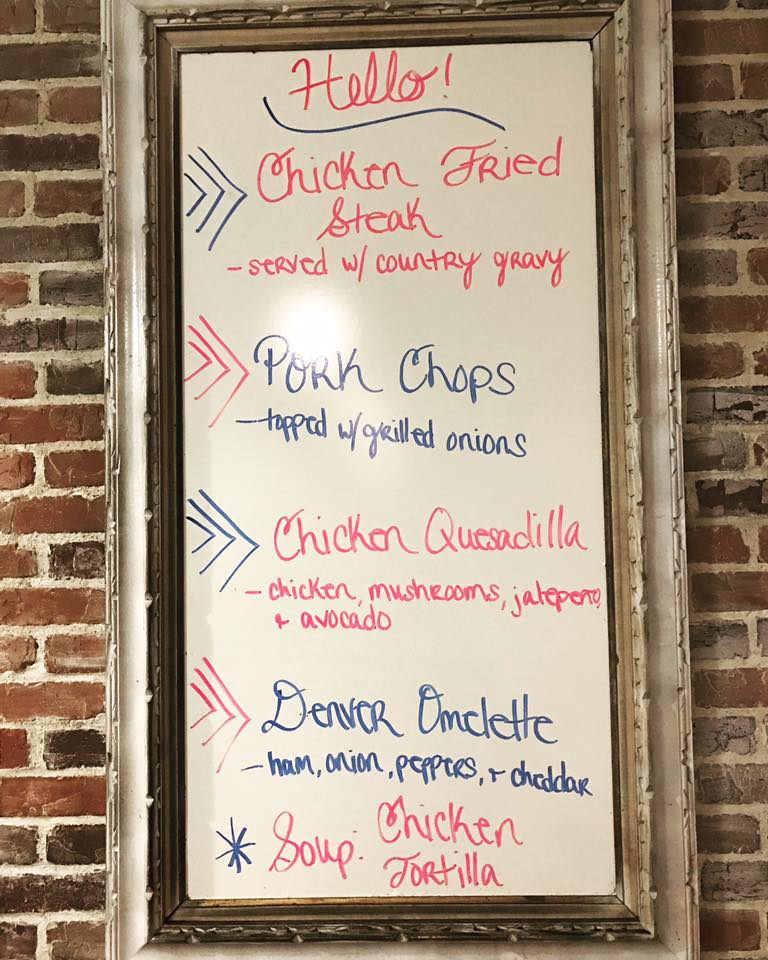 Hello!
Chicken Fried
Steak
- served w/ country gravy
Pork Chops
- topped w/ grilled onions
Chicken Quesadilla
- chicken, mushrooms, jalepeno,
+ avocado
Denver Omelette
- ham, onion, peppers, + cheddar
* Soup: Chicken
Tortilla